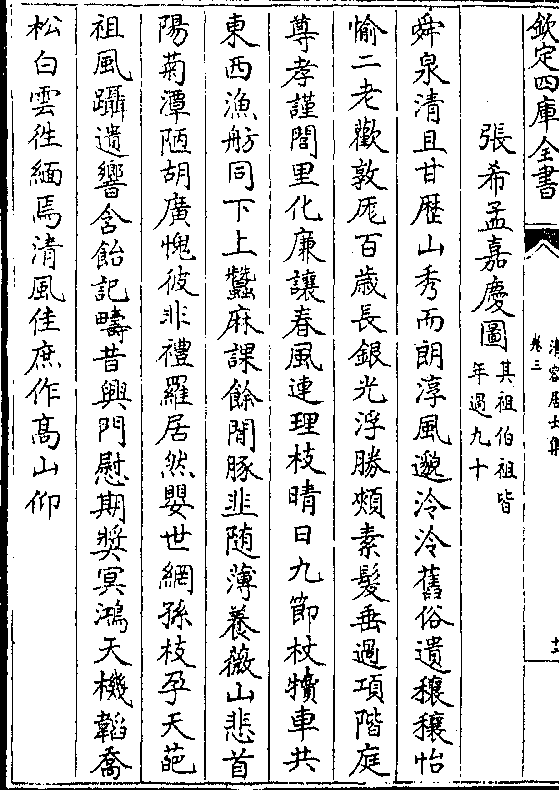 欽定四庫全書
清容居士集
卷三
十二
張希孟嘉慶圖其祖伯祖皆年過九十
舜泉清且甘歷山秀而朗淳風邈泠泠舊俗遺穰穰怡
愉二老歡敦厖百歲長銀光浮勝頰素髮垂過項階庭
尊孝謹閭里化廉讓春風連理枝晴日九節杖犢車共
東西漁舫同下上蠶麻課餘閒豚韭随薄養薇山悲首
陽菊潭陋胡廣愧彼非禮羅居然嬰世網孫枝孕天葩
祖風躡遺響含飴記疇昔興門慰期奬冥鴻天機韜喬
松白雲徃緬焉清風佳庶作髙山仰